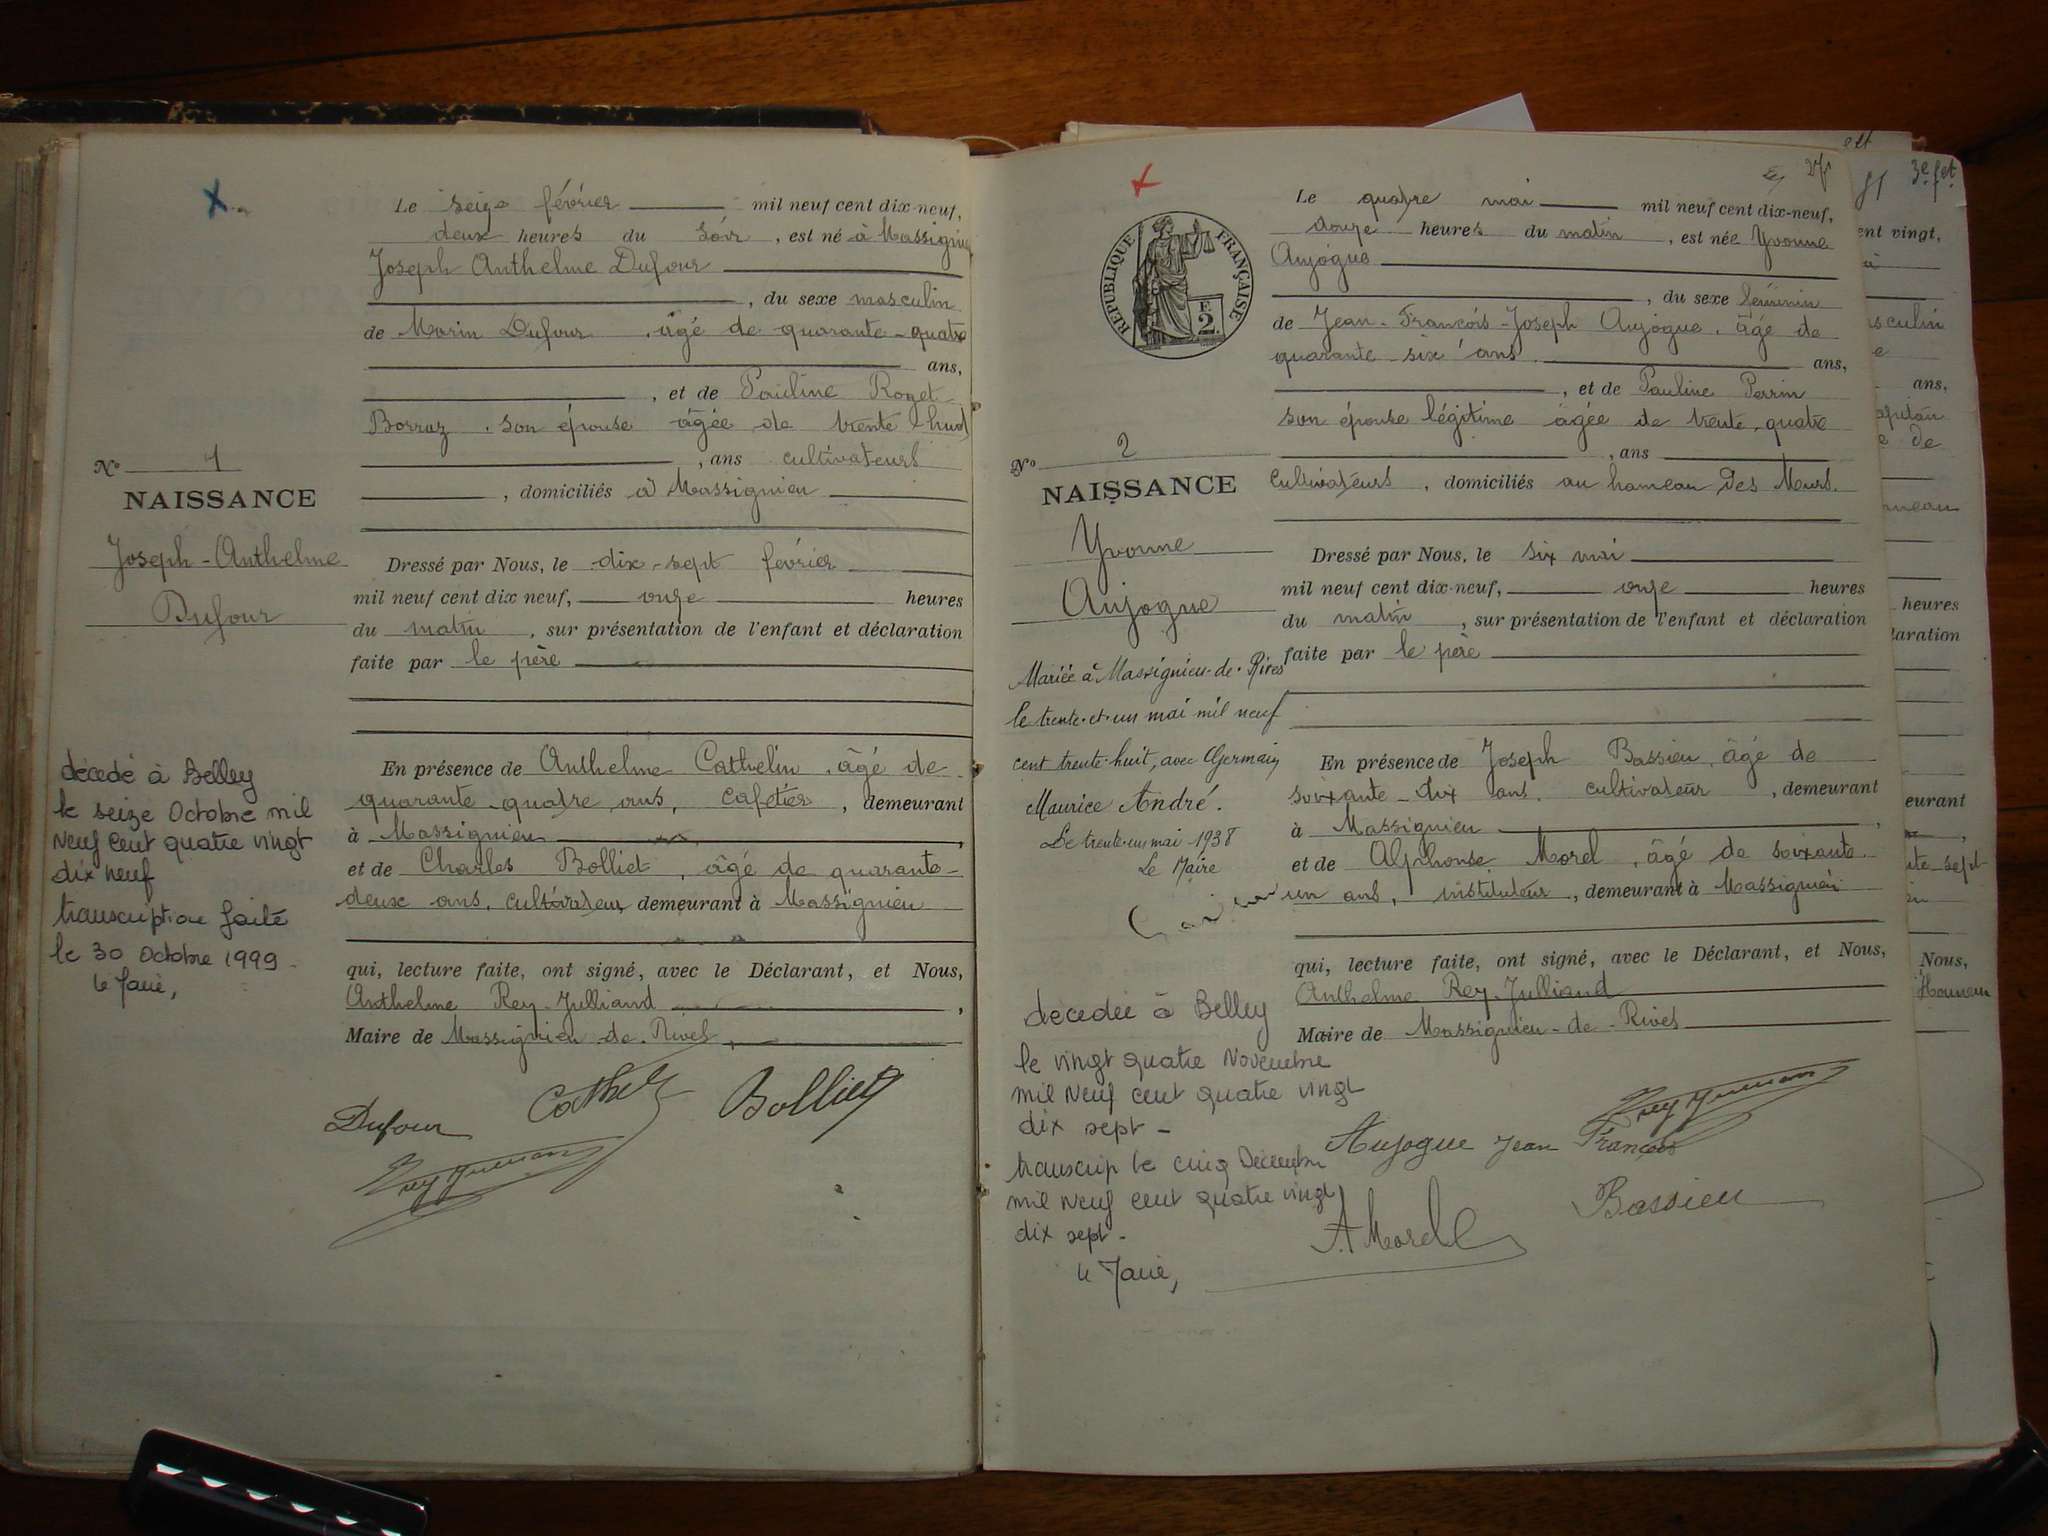 Le seize février mil neuf cent dix-neuf,
deux heures du soir, est né à Massignieu
Joseph Anthelme Dufour
, du sexe masculin
de Marin Dufour, âgé de quarante-quatre
ans,
, et de Pauline Roget
Borraz, son épouse âgée de trente huit
, ans cultivateurs
, domiciliés à Massignieu
N° 1
NAISSANCE
Joseph-Anthelme
Dufour
Dressé par Nous, le dix-sept février
mil neuf cent dix neuf, onze heures
du matin, sur présentation de l'enfant et déclaration
faite par le père
décédé à Belley
le seize Octobre mil
Neuf Cent quatre vingt
dix neuf
transcription faite
le 30 Octobre 1999
le Maire,
En présence de Anthelme Cathelin, âgé de
quarante-quatre ans, cafetier, demeurant
à Massignieu,
et de Charles Bolliet, âgé de quarante-
deux ans, cultivateur, demeurant à Massignieu
qui, lecture faite, ont signé, avec le Déclarant, et Nous,
Anthelme Rey-Julliand,
Maire de Massignieu-de-Rives,
Dufour Bolliet
27
Le quatre mai mil neuf cent dix-neuf,
heures du matin, est née Yvonne
Aujogue
, du sexe féminin
de Jean-François-Joseph Aujogue, âgé de
quarante-six ans. ans,
, et de Pauline Perrin
son épouse légitime âgée de trente-quatre
, ans
cultivateurs, domiciliés au hameau des Murs.
RÉPUBLIQUE FRANÇAISE
F.
2.
N° 2
NAISSANCE
Yvonne
Aujogue
Dressé par Nous, le six mai
mil neuf cent dix-neuf, onze heures
du matin, sur présentation de l'enfant et déclaration
faite par le père
Mariée à Massignieu-de-Rives
le trente-et-un mai mil neuf
cent trente-huit, avec Germain
Maurice André.
Le trente-un mai 1938
Le Maire
En présence de Joseph Bassieu, âgé de
soixante-dix ans, cultivateur, demeurant
à Massignieu,
et de Alphonse Morel, âgé de soixante
un ans, instituteur, demeurant à Massignieu
qui, lecture faite, ont signé, avec le Déclarant, et Nous,
Anthelme Rey-Julliand
Maire de Massignieu-de-Rives
décédée à Belley
le vingt quatre Novembre
mil Neuf cent quatre vingt
dix sept -
transcrip le cinq Décembre
mil Neuf Cent quatre vingt
dix sept -
le Maire,
Aujogue Jean François
A Morel Bassieu
3e fet
ent vingt,
sculin
ans,
de
heures
laration
eurant
Nous,